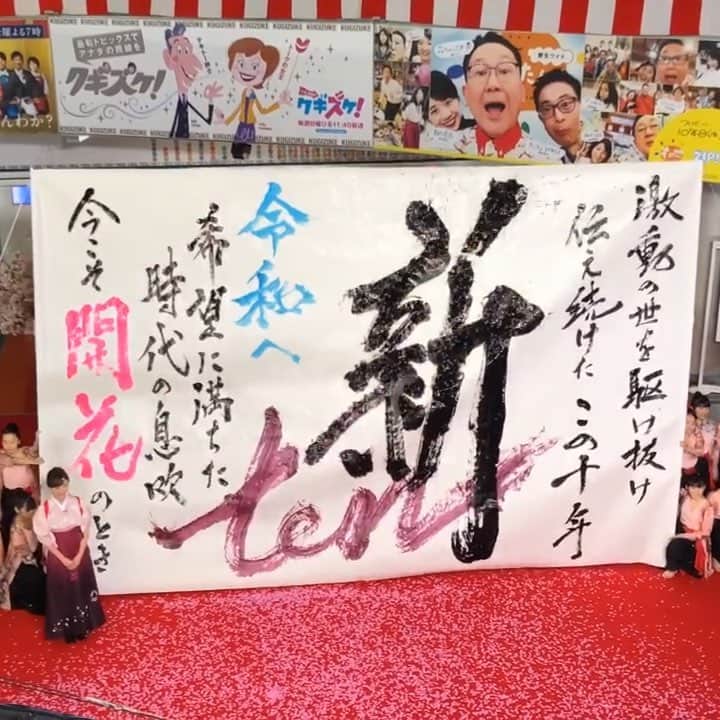 KUGIZUKE KUGIZUKE KUGIZUKE KUGIZUKE
曜よる7時
んわか?
最旬トピックスで
アナタの視線を
クギズケ!
クギズケ!
毎週日曜ひる11:40放送
激動の世を駆け抜け
伝え続けたこの十年
新
ten
令和へ
希望に満ちた
時代の息吹
今こそ開花のとき